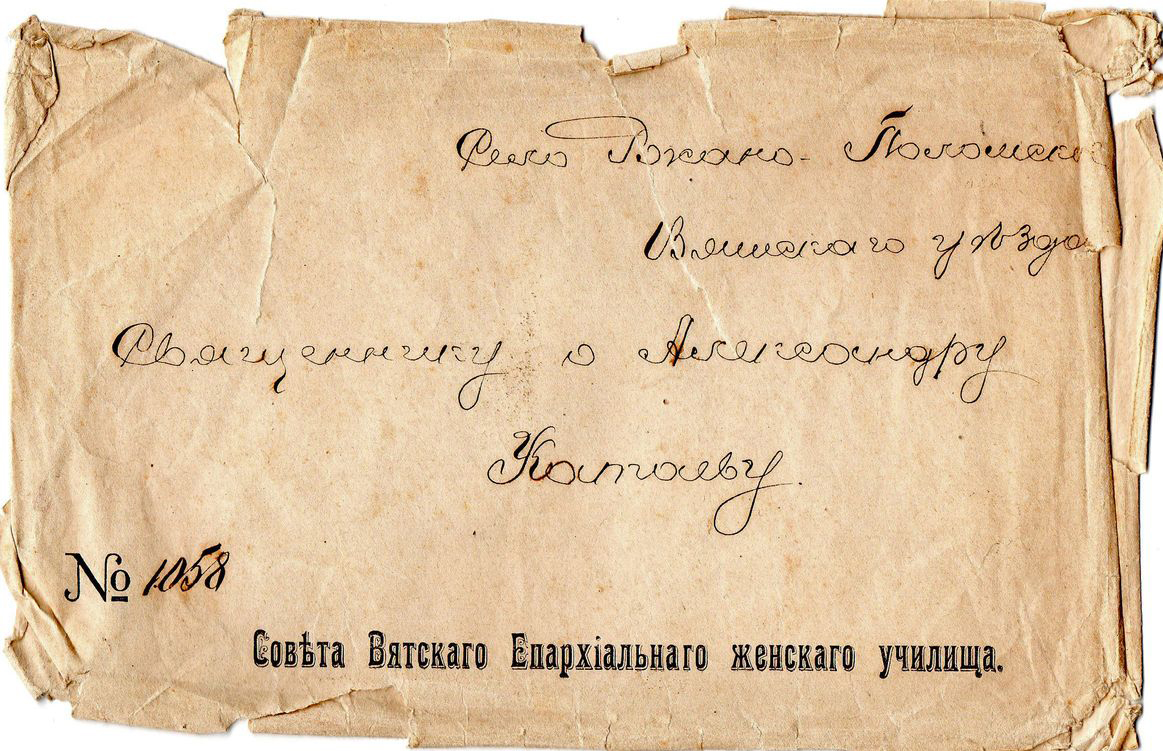 Село Ржано-Поломское
Вятскаго уѣзда
Священнику о Александру
Катаеву.
№ 1058
Совѣта Вятскаго Епархіальнаго женскаго училища.